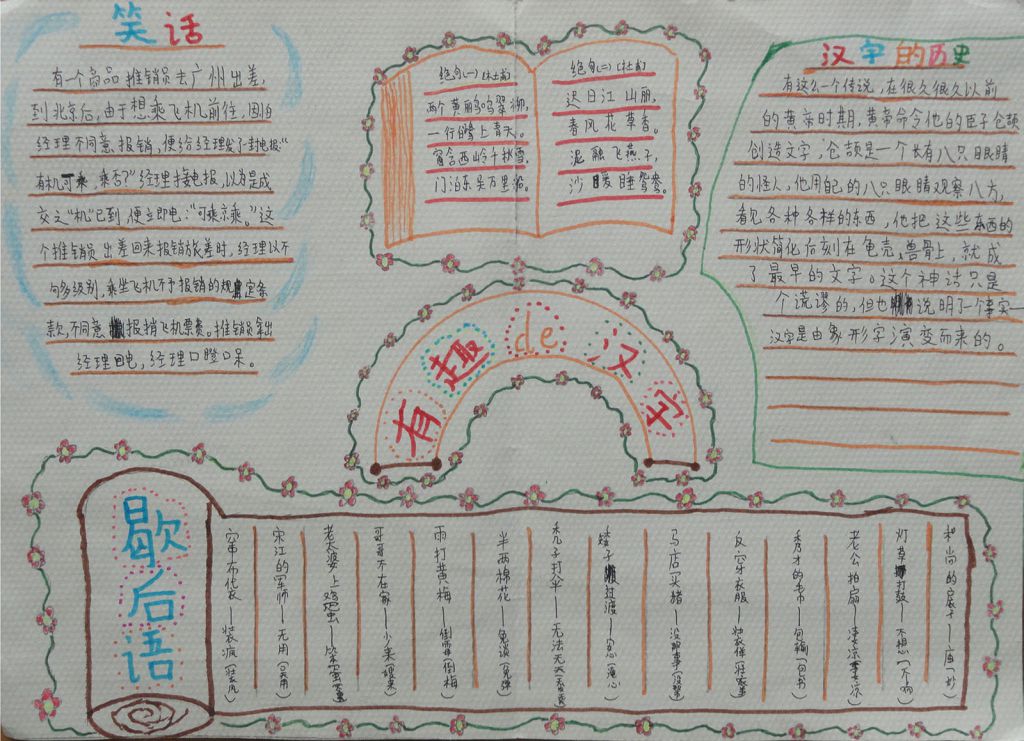 笑话
有一个商品推销员去广州出差,
到北京后,由于想乘飞机前往,因怕
经理不同意报销,便给经理发了一封电报:“
有机可乘,乘否?”经理接电报,以为是成
交之“机”已到便立即电:“可乘就乘。”这
个推销员出差回来报销旅差时,经理以不
够级别,乘坐飞机不予报销的规定条
款,不同意报销飞机票费。推销员拿出
经理回电,经理口瞪口呆。
绝句(一)(杜甫)
两个黄丽鸣翠柳,
一行白鹭上青天。
窗含西岭千秋雪,
门泊东吴万里船。
绝句(二)(杜甫)
迟日江山丽,
春风花草香。
泥融飞燕子,
沙暖睡鸳鸯。
汉字的历史
有这么一个传说,在很久很久以前
的黄帝时期,黄帝命令他的臣子仓颉
创造文字,仓颉是一个长有八只眼睛
的怪人,他用自己的八只眼睛观察八方,
看见各种各样的东西,他把这些东西的
形状简化后刻在龟壳,兽骨上,就成
了最早的文字。这个神话只是
个谎谬的,但也说明了一个事实—
汉字是由象形字演变而来的。
有趣de汉字
歇后语
和尚的房子——庙(妙)
灯草打鼓——不想(不响)
老公拍扇——凄凉(妻凉)
秀才的书——包输(包书)
反穿衣服——装佯(装羊)
马店买猪——没那事(没那市)
矮子过渡——心(淹心)
秃子打伞——无法无天
半两棉花——免谈(免弹)
雨打黄梅——倒霉(倒梅)
哥哥不在家——少来
老太婆上鸡窝——笨蛋
宋江的军师——无用(吴用)
空中布袋——装疯(装风)